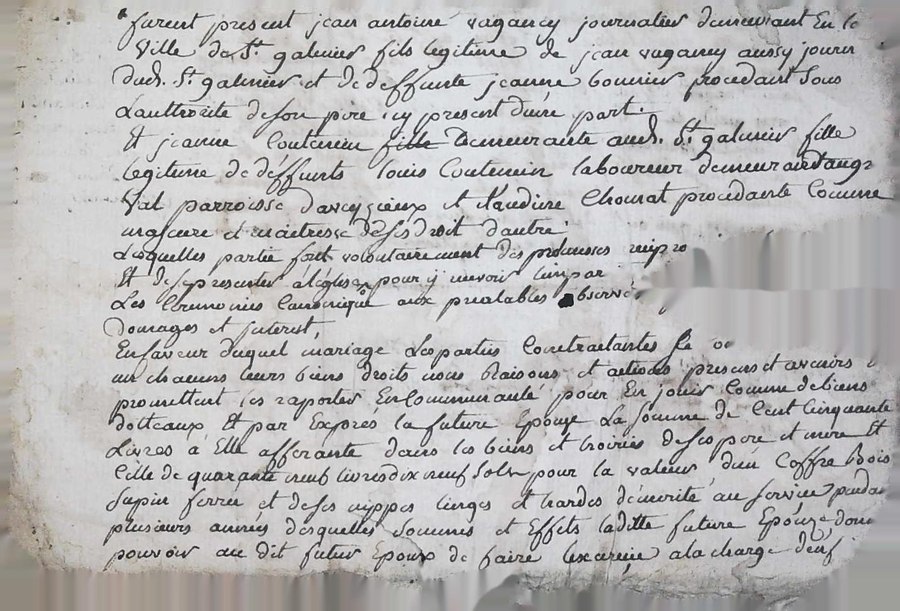 furent present jean antoine vagancy journalier demeurant En la
Ville de St. galmier fils legitime de jean vagancy aussy journ
dud. St. galmier et de deffunte jeanne bonnier procedant sous
Lauthorité de son pere icy present dune part.
Et jeanne Coutenin fille Demeurante aud. St. galmier fille
legitime de déffunts louis Coutenin laboureur demeurant
Val parroisse daveyzieux et Klaudine Chomat procedante Comme
majeure et maitresse de ses droit dautre.
Lesquelles partie font volontairement des promesses recipro
Et de se presenter a leglise pour y recevoir
Les Ceremonies Canonique aux prealables observé
Domages et jnterest,
En faveur duquel mariage Les parties Contractantes se
un chacuns leurs biens droits noms Raisons et actions presens et avenirs
promettent les raporter En Communauté pour En jouir Comme de biens
dotteaux Et par Exprés la future Epouze La somme de Cent Cinquante
Livres à Elle afferante dans les biens et hoiries de ses pere et mere Et
Celle de quarante neuf livres dix neuf sols pour la valeur dun Coffre Bois
sapin ferré et de ses nippes linges et hardes démerité au service pendan
plusieurs années desquelles sommes et Effets laditte future Epouze donne
pouvoir au dit futur Epoux de faire a la charge